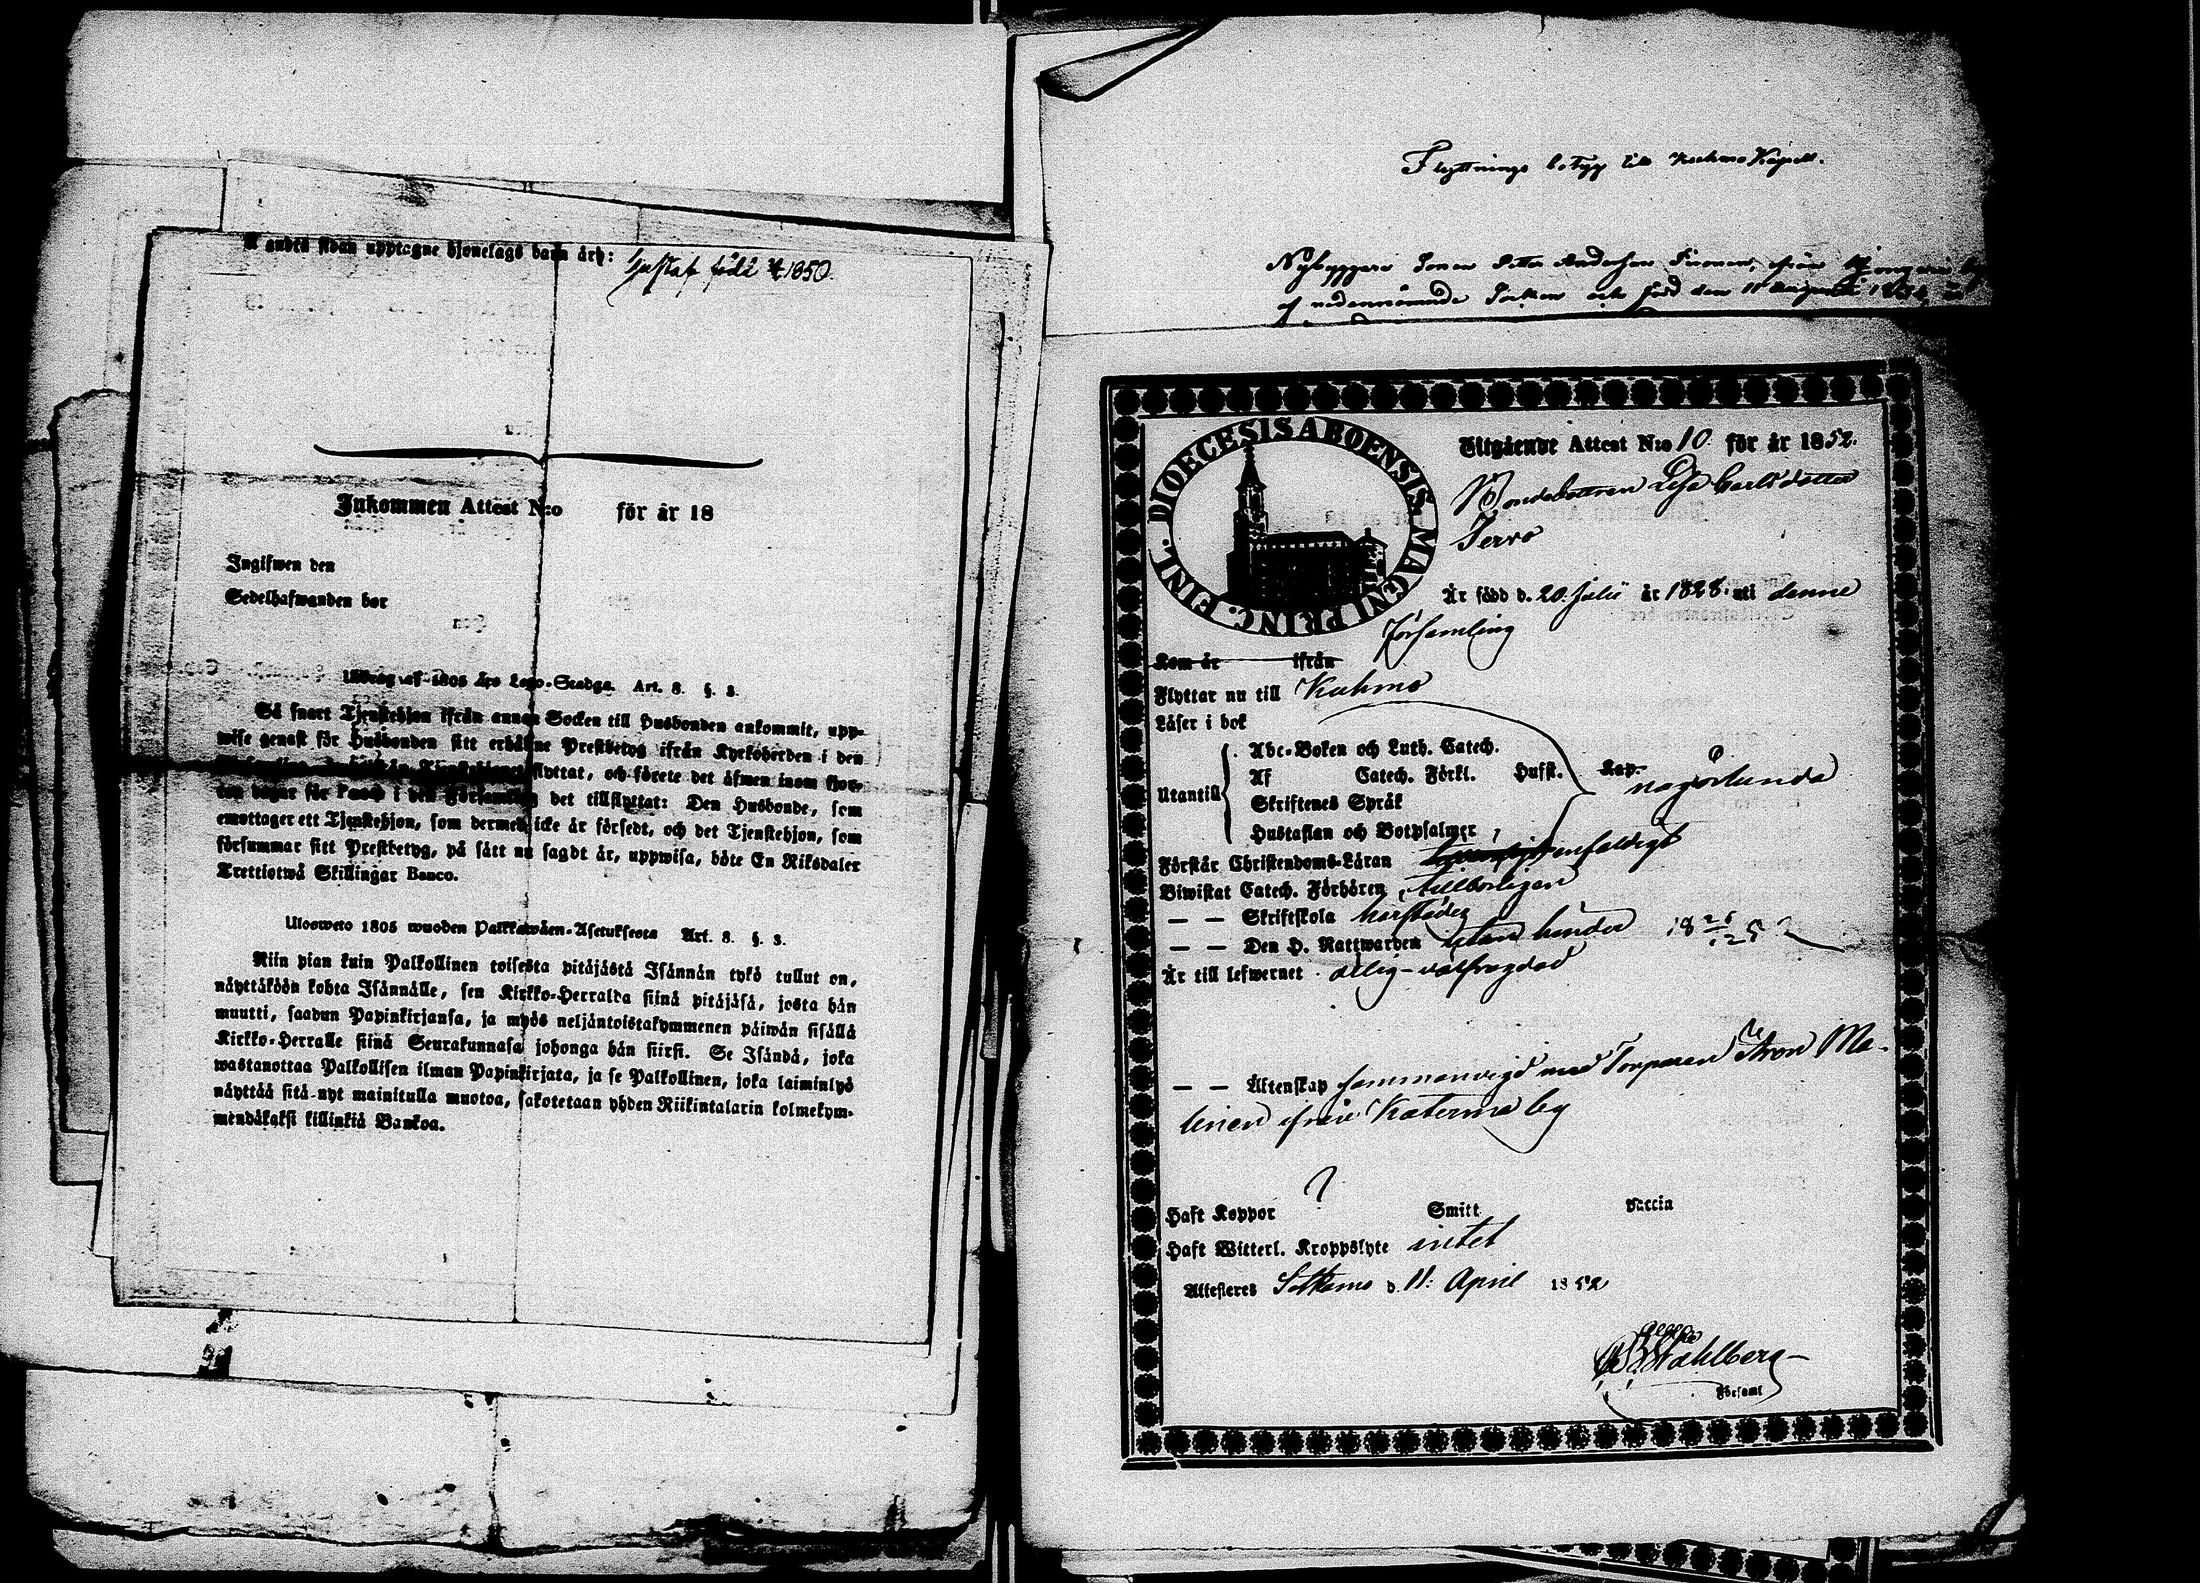 å andra sidan upptagne hjonelags barn äro: Gustaf född 1850.
Inkommen Attest N:o för år 18
Ingifwen den
Sedelhafwanden bor
Utdrag af 1805 års Lego-Stadga. Art. 8. §. 3.
Så snart Tjenstehjon ifrån annan Socken till Husbonden ankommit, upp-
wise genast för Husbonden sitt erhållne Prestbetyg ifrån Kyrkoherden i den
flyttat, och förete det äfwen inom fjor-
ton dagar för i den Församling det tillflyttat: Den Husbonde, som
emottager ett Tjenstehjon, som dermed icke är försedt, och det Tjenstehjon, som
försummar sitt Prestbetyg, på sätt nu sagdt är, uppwisa, böte En Riksdaler
Trettiotwå Skillingar Banco.
Ulosweto 1805 wuoden Palkkawäen-Asetuksesta Art. 8. §. 3.
Niin pian kuin Palkollinen toisesta pitäjästä Isännän tykö tullut on,
näyttäköön kohta Isännälle, sen Kirkko-Herralda siinä pitäjäsä, josta hän
muutti, saadun Papinkirjansa, ja myös neljäntoistakymmenen päiwän sisällä
Kirkko-Herralle siinä Seurakunnasa johonga hän siirsi. Se Isändä, joka
wastanottaa Palkollisen ilman Papinkirjata, ja se Palkollinen, joka laiminlyö
näyttää sitä-nyt mainitulla muotoa, sakotetaan yhden Riikintalarin kolmekym-
mendäkaksi killinkiä Bankoa.
Flyttnings betyg till Kuhmo Kapell.
Nybyggare Sonen Petter Andersson från
nedannämnde Socken och född den 11 Augusti
DIOECESIS ABOENSIS. MAGNI PRINC. FINL.
Utgående Attest N:o 10. för år 1852.
Bondedottren Lisa Carlsdotter
Jervo
Är född d. 20. Julii år 1828. uti denne
församling
Kom år ifrån
Flyttar nu till Kuhmo
Läser i bok
Utantill
Abc-Boken och Luth. Catech.
Af Catech. Förkl. Hufst. Kap. någorlunda
Skriftenes Språk
Hustaflan och Botpsalmer
Förstår Christendoms-Läran enfaldigt
Biwistat Catech. Förhören tillbörligen
— — Skriftskola härstädes
— — Den H. Nattwarden utan hinder
Är till lefwernet ärlig-välfrägdad
— — Äktenskap sammanvigd med Torparen Aron Ma-
linen ifrån Katerma by
Haft Koppor ? Smitt Vaccin
Haft Witterl. Kroppslyte intet
Attesteres Sotkamo d. 11: April 1852
Wahlberg
Församl